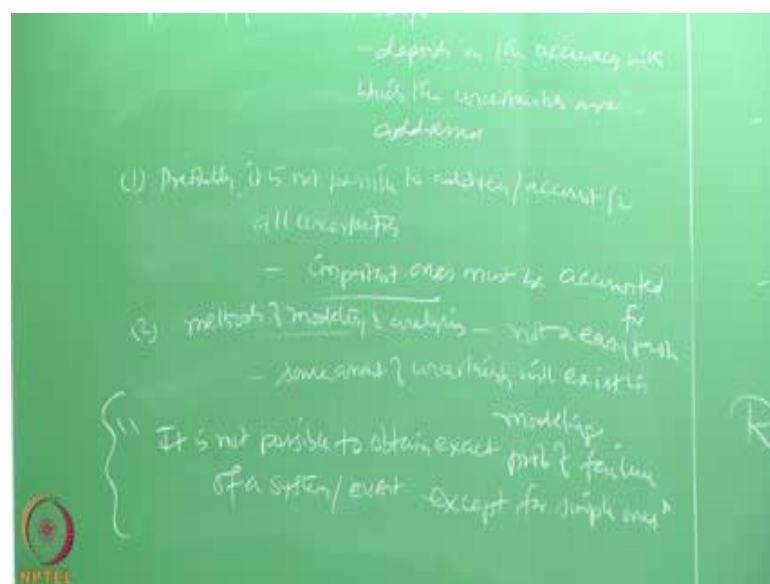 - depends on the accuracy with
which the uncertainties are
addressed
(1) Practically, it is not possible to address/account for
all uncertainties
- important ones must be accounted
for
(2) methods of modeling & analysis - not a easy task
- some amount of uncertainty will exist in
modeling
" It is not possible to obtain exact prob of failure
of a system/event except for simple ones"
R
NPTEL